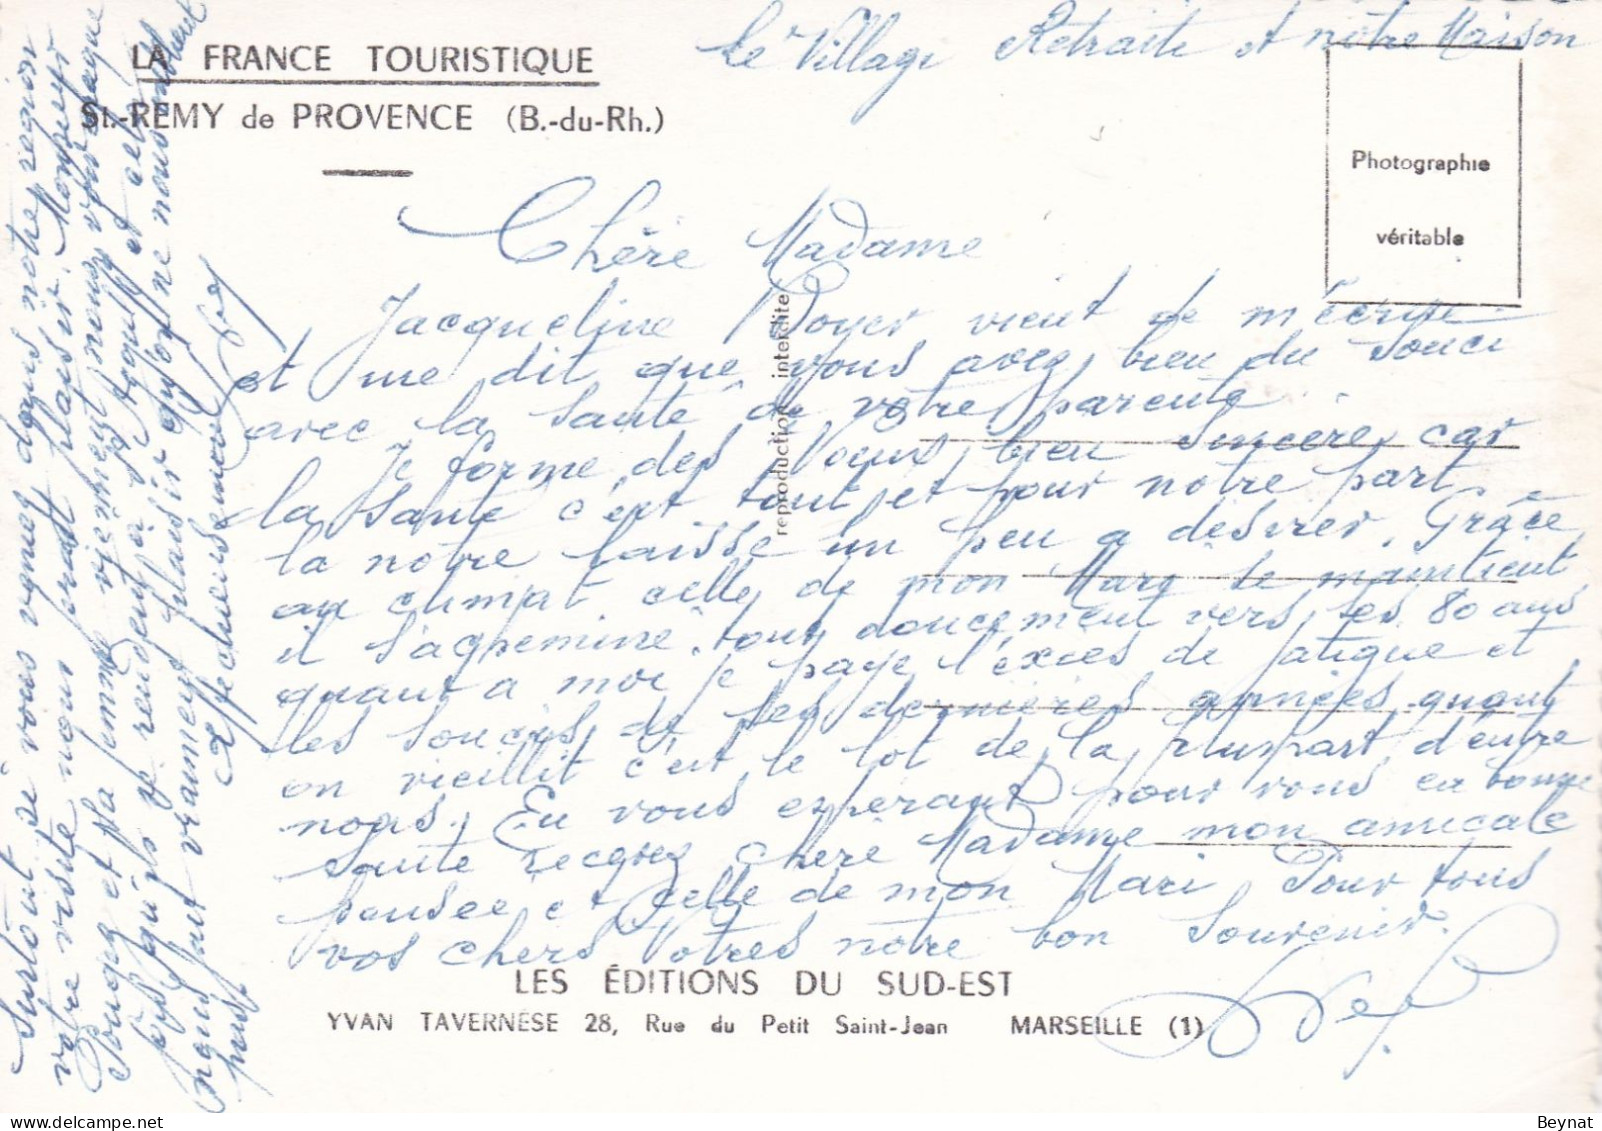 Le Village Retraite et notre Maison
LA FRANCE TOURISTIQUE
St.-REMY de PROVENCE (B.-du-Rh.)
Photographie
véritable
reproduction interdite
Chère Madame
Jacqueline Doyer vient de m'écrire
et me dit que vous avez bien du souci
avec la santé de votre parente.
Je forme des voeux bien sincères car
la santé c'est tout et pour notre part
la notre laisse un peu a desirer. Grâce
au climat celle de mon Mari se maintient
il s'achemine tout doucement vers les 80 ans
quant a moi je paye l'excès de fatigue et
les soucis de ses dernières années quant
on vieillit c'est le lot de la plupart d'entre
nous. En vous espérant pour vous en bonne
santé recevez chère Madame mon amicale
pensée et celle de mon Mari. Pour tous
vos chers votres notre bon souvenir.
LES ÉDITIONS DU SUD-EST
YVAN TAVERNESE 28, Rue du Petit Saint-Jean MARSEILLE (1)
Surtout si vous venez dans notre région
votre visite nous ferait plaisir. Monsieur
Pouget et sa femme viennent nous voir chaque
fois qu'ils se rendent à St Aygulf et cela
nous fait vraiment plaisir qu'on ne nous oublient
pas
Affectueusement
Beynat